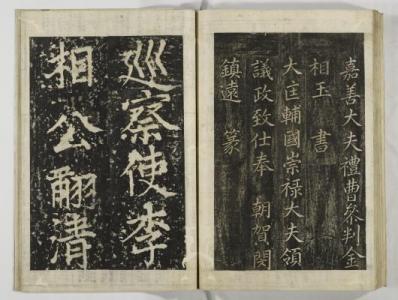 嘉善大夫禮曹參判金
相玉 書
大匡輔國崇祿大夫領
議政致仕奉 朝賀閔
鎮遠 篆
巡察使李
相公翻清